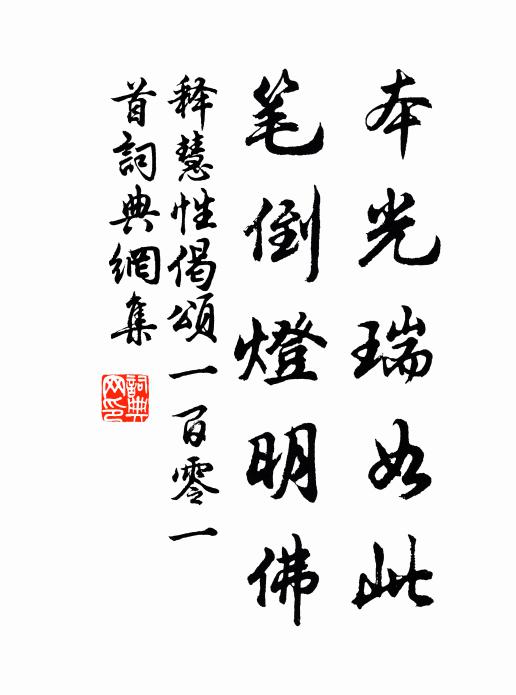 本光瑞如此
笔倒燈明佛
释慧性偈頌一百零一
首詞典網集
詞典网印